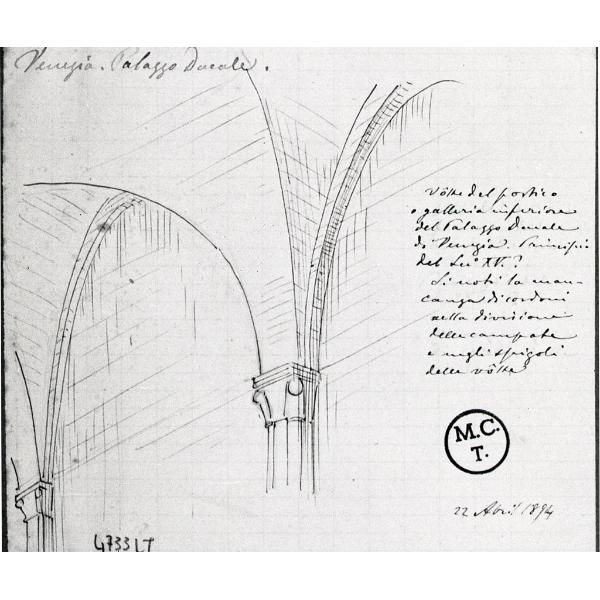 Venezia. Palazzo Ducale.
Vôlte del portico
o galleria inferiore
del Palazzo Ducale
di Venezia. Principii
del Sec° XV.?
Si noti la man-
canza di cordoni
nella divisione
delle campate
e negli spigoli
delle vôlte
M.C.
T.
22 Abril 1894
4733 LT